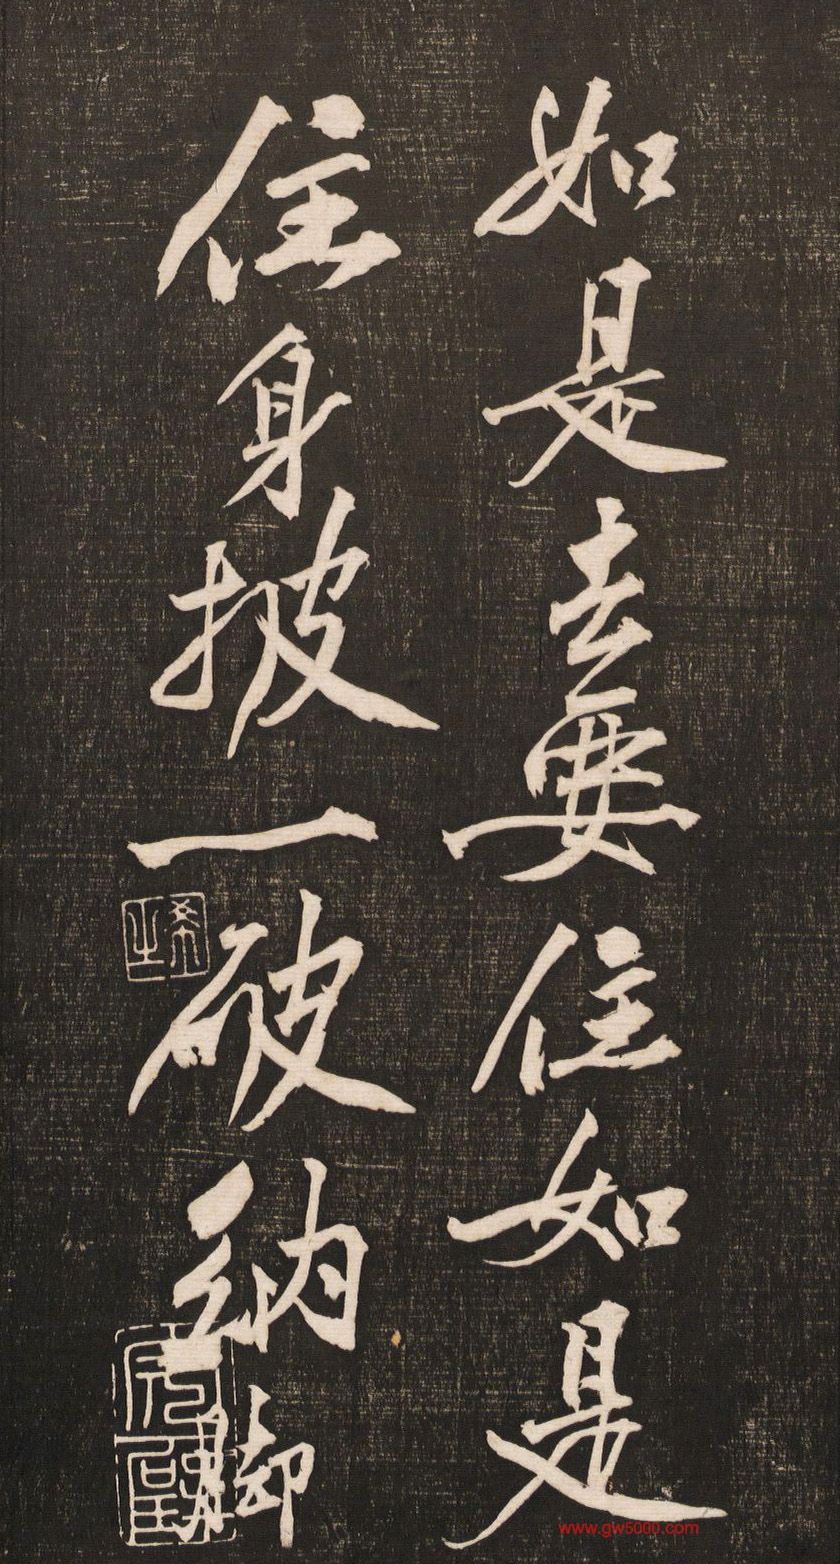 如是去要住如是
住身披一破納脚
www.gw5000.com